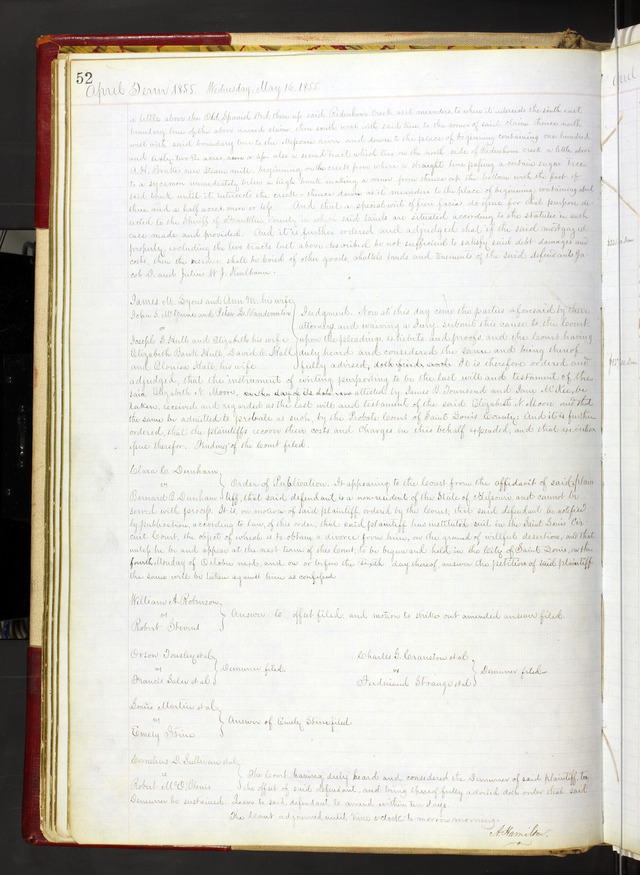 52
April Term 1855. Wednesday, May 16, 1855
a little above the Old Spanish Ford then up said creek as it meanders to where it intersects the south east
boundary line of the above named claim, then south west with said line to the corner of said claim thence north
west with said boundary line to the river and down to the place of beginning containing one hundred
and sixty two acres, also a second tract which lies on the north side of creek a little above
new steam mill, beginning on the creek from where a straight line passing a certain sugar tree
to a sycamore immediately below a high bank making a corner from thence up the bottom with the foot of
said bank until it intersects the creek thence down as it meanders to the place of beginning containing about
three and a half acres more or less. And that a special writ of fieri facias do issue for that purpose di-
rected to the Sheriff of Franklin County in which said lands are situated according to the statute in such
case made and provided. And it is further ordered and adjudged that if the said mortgaged
property, including the two tracts last above described be not sufficient to satisfy said debt damages and
costs, then the residue shall be levied of other goods, chattels lands and tenements of the said defendants Ja-
cob D. and Julius W. J.
James M. Lyons and Ann M. his wife
John S. McGunn and Peter L. Vandeventer
vs
Joseph G. Hull and Elizabeth his wife
Elizabeth Bault Hull, David C. Hall
and Clarissa Hall his wife
Judgment. Now at this day come the parties aforesaid by their
attorneys and waiving a Jury submit this cause to the Court
upon the pleadings, exhibits and proofs and the Court having
duly heard and considered the same and being thereof
fully advised, It is therefore ordered and
adjudged, that the instrument of writing purporting to be the last will and testament of the
said Elizabeth N. Moore, attested by James B. Townsend and Jane McKee, be
taken, received and regarded as the last will and testament of the said Elizabeth N. Moore and that
the same be admitted to Probate as such, by the Probate Court of Saint Louis County. And it is further
ordered, that the plaintiffs recover their costs and charges in this behalf expended, and that execution
issue therefor. Finding of the Court filed.
Clara C. Dunham
vs
Bernard B. Dunham
Order of Publication. It appearing to the Court from the affidavit of said plain-
tiff, that said defendant is a non-resident of the State of Missouri, and cannot be
served with process. It is, on motion of said plaintiff ordered by the Court, that said defendant be notified
by publication, according to law, of this order, that said plaintiff has instituted suit in the Saint Louis Cir-
cuit Court, the object of which is to obtain a divorce from him, on the ground of willful desertion, and that
unless he be and appear at the next term of this Court, to be begun and held in the City of Saint Louis, on the
fourth Monday of October next, and on or before the sixth day thereof answer the petition of said plaintiff
the same will be taken against him as confessed
William A. Robinson
vs
Robert Stevens
Answer to offset filed, and motion to strike out amended answer filed.
Orson Tousley et al
vs
Francis Saler et al
Demurrer filed.
Charles G. Cranston et al
vs
Ferdinand Strange et al
Demurrer filed
Louis Martin et al
vs
Emely Stine
Answer of Emely Stine filed
Cornelius D. Sullivan et al
vs
Robert McO'Blenis
The Court having duly heard and considered the Demurrer of said plaintiff, to
the offset of said defendant, and being thereof fully advised doth order that said
Demurrer be sustained. Leave to said defendant to amend within ten days.
The Court adjourned until nine o'clock to morrow morning.
A. Hamilton.